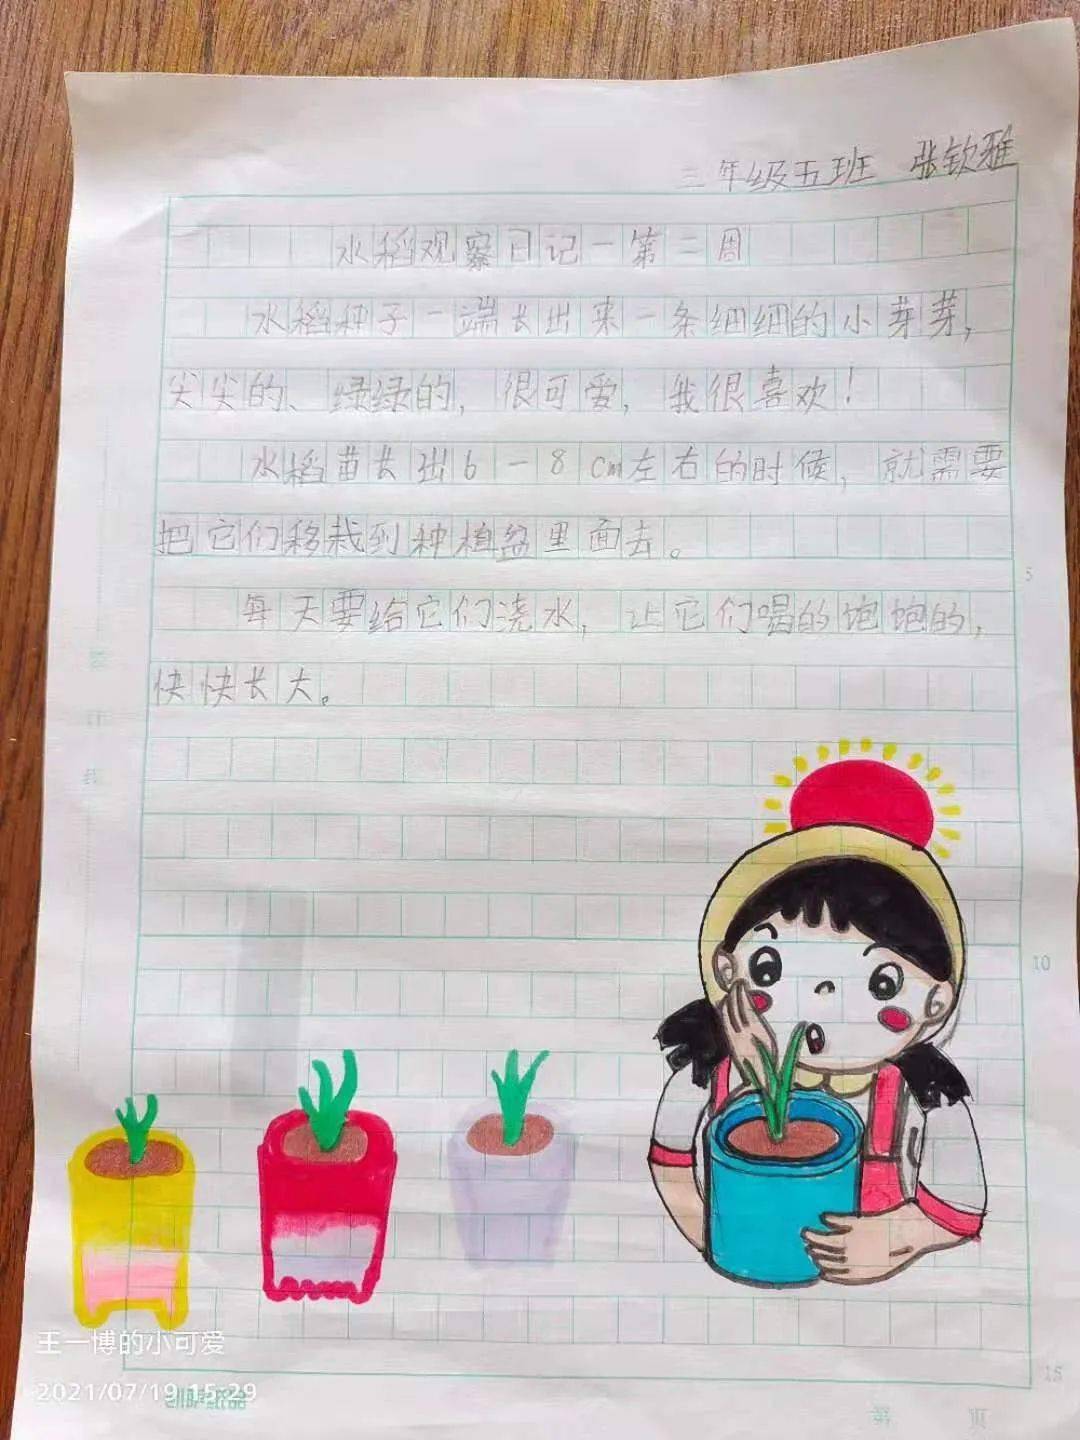 三年级五班 张钦雅
水稻观察日记一第二周
水稻种子一端长出来一条细细的小芽芽，
尖尖的、绿绿的，很可爱，我很喜欢！
水稻苗长出6一8cm左右的时候，就需要
把它们移栽到种植盆里面去。
5
每天要给它们浇水，让它们喝的饱饱的，
快快长大。
10
王一博的小可爱
2021/07/19 15:29
15
第 页